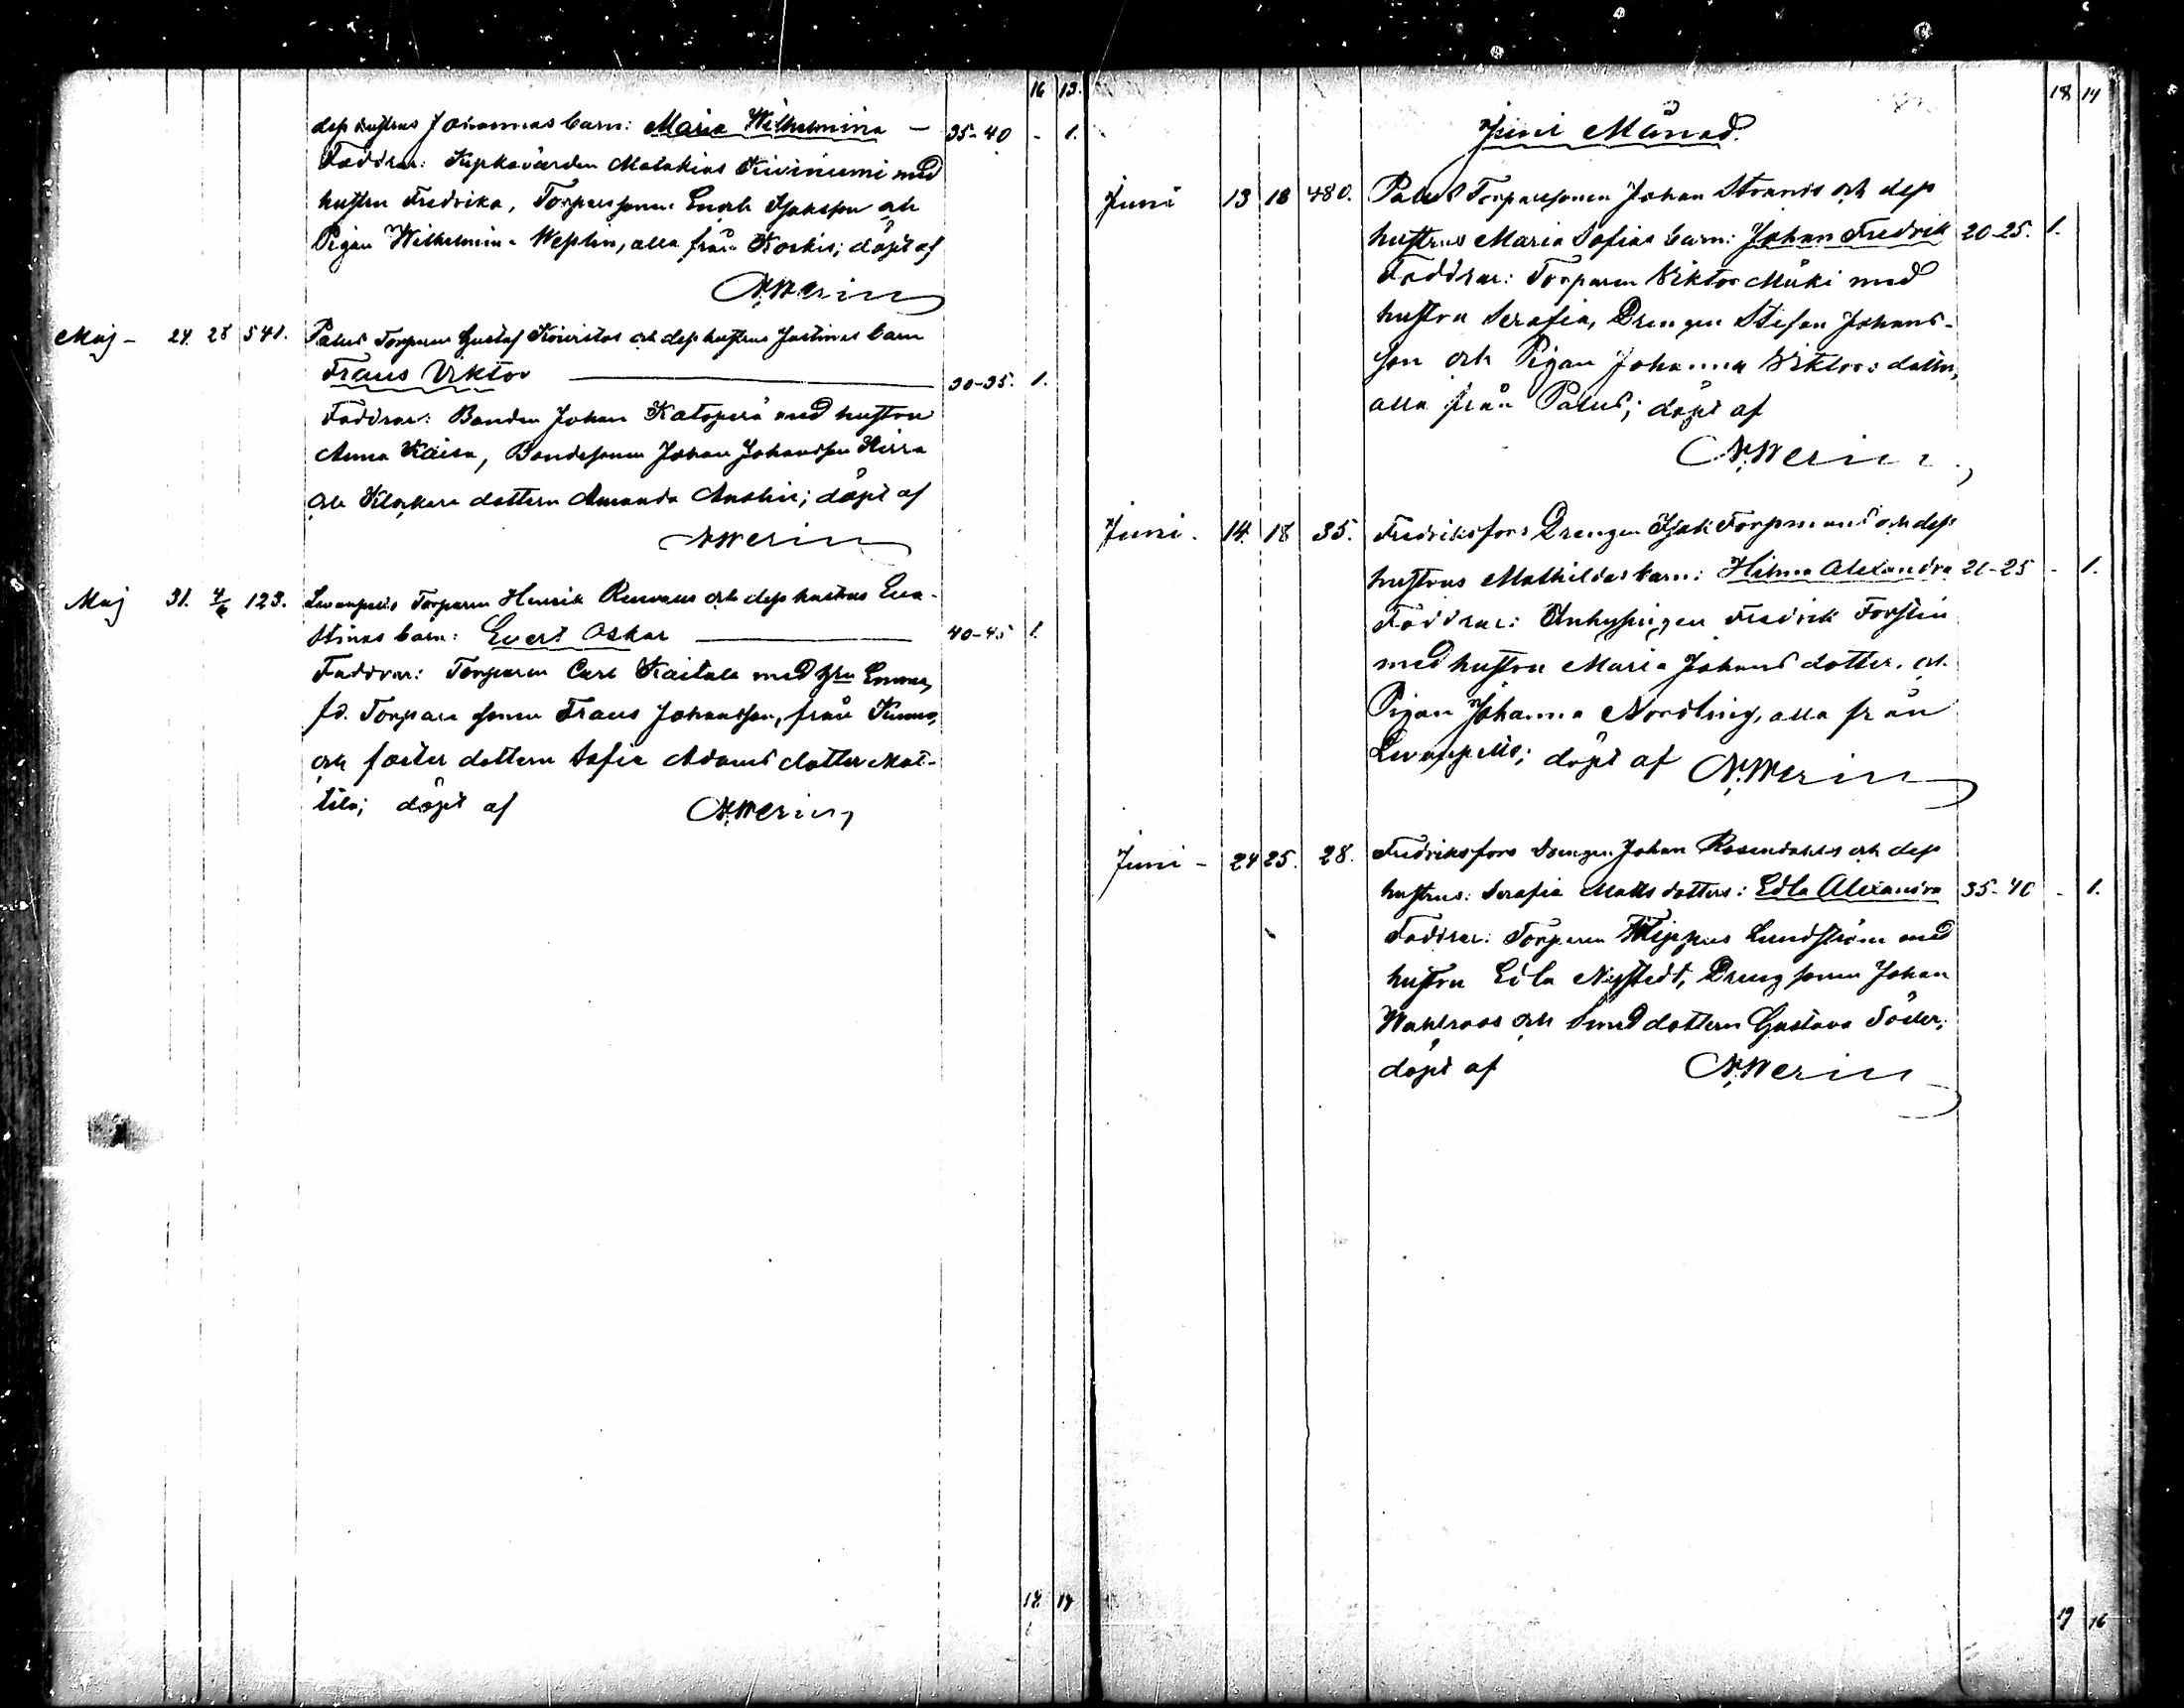 16 13.
dess hustrus Johannas barn: Maria Wilhelmina — 35-40 - 1.
Faddrar: Kyrkovärden Malakias Kiviniemi med
hustru Fredrika, Torparesonen Enoch Isaksson och
Pigan Wilhelmina Weslin, alla från Korkis; döpt af
N. Merin
Maj - 24. 28 541. Palus Torparen Gustaf Koivistos och dess hustrus Justinas barn
Frans Viktor — 30-35. 1.
Faddrar: Bonden Johan Katoperä med hustru
Anna Kaisa, Bondesonen Johan Johansson
och Klockare dottern Amanda; döpt af
N. Merin
Maj 31. 4/6 123. Levanpelto Torparen Henrik och dess hustrus Eva
Stinas barn: Evert Oskar — 40-45 1.
Faddrar: Torparen Carl Kaitala med hru Emma,
fd. Torpare sonen Frans Johansson, från
och foster dottern Sofia Adams dotter Mat-
tila; döpt af N. Merin
17 14
18 14
Juni Månad.
Juni 13 18 480. Palus Torparesonen Johan Strands och dess
hustrus Maria Sofias barn: Johan Fredrik 20-25. 1.
Faddrar: Torparen Viktor Mäki med
hustru Serafia, Drengen Stefan Johans-
son och Pigan Johanna Viktors dotter,
alla från Palus; döpt af
N. Merin
Juni. 14. 18 35. Fredriksfors Drengen Isak Torpmans och dess
hustrus Mathildas barn: Hilma Alexandra 21-25 - 1.
Faddrar: Inhysingen Fredrik Forstin
med hustru Maria Johans dotter, och
Pigan Johanna Nordling, alla från
Levanpelto; döpt af N. Merin
Juni - 24 25. 28. Fredriksfors Drengen Johan Rosendahls och dess
hustrus: Serafia Matts dotters: Edla Alexandra 35-40 - 1.
Faddrar: Torparen Lundström med
hustru Edla Nystedt, Dreng sonen Johan
Wahlroos och Smed dottern Gustava Söder;
döpt af N. Merin
19 16